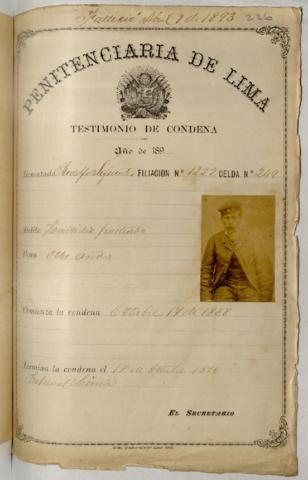 Falleció Abril 8 de 1893 226
PENITENCIARIA DE LIMA
TESTIMONIO DE CONDENA
Año de 189
Rematado FILIACIÓN N.º 1222 CELDA N.º 249
Delito Homicidio
Pena Ocho años
Comienza la condena Octubre 19 de 1888
Termina la condena el de Octubre 1896
Tribunal
EL SECRETARIO